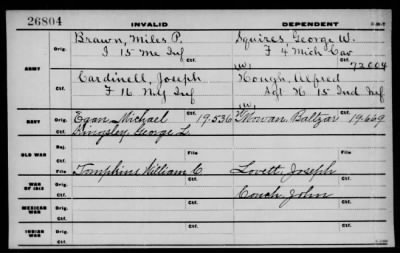 26804
INVALID
DEPENDENT
Brawn, Miles P.
Squires, George W.
Orig.
I 15 Me Inf
F 4 Mich Cav
Ctf.
(W)
72004
ARMY
Cardinell, Joseph
Hough, Alfred
Orig.
F 16 Ny Inf
Sgt K 15 Ind Inf
Ctf.
(W)
NAVY
Orig.
Egan, Michael
19,536
Mowan, Baltzar
19,669
Ctf.
Kingsley, George L.
OLD WAR
Rej.
File
Ctf.
File
Tompkins William C
Lovett, Joseph
WAR OF 1812
Orig.
Ctf.
Couch, John
MEXICAN WAR
Orig.
Ctf.
INDIAN WAR
Orig.
Ctf.